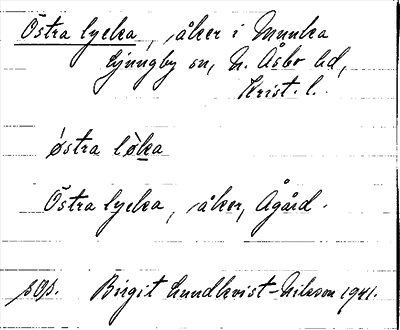 Östra lycka, åker i Munka
Ljungby sn, N. Åsbo hd,
Krist. l.
östra lòka
Östra lycka, åker, Ågård.
sOp. Birgit Lundkvist-Nilsson 1941.